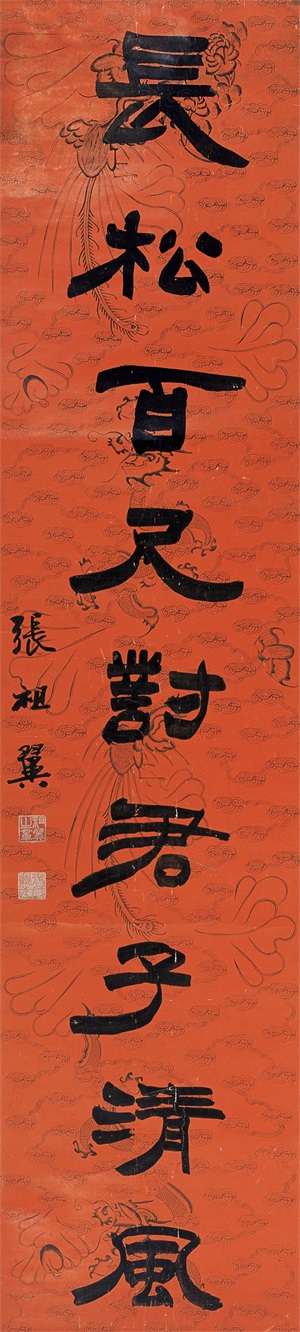 長松百尺對君子清風
張祖翼